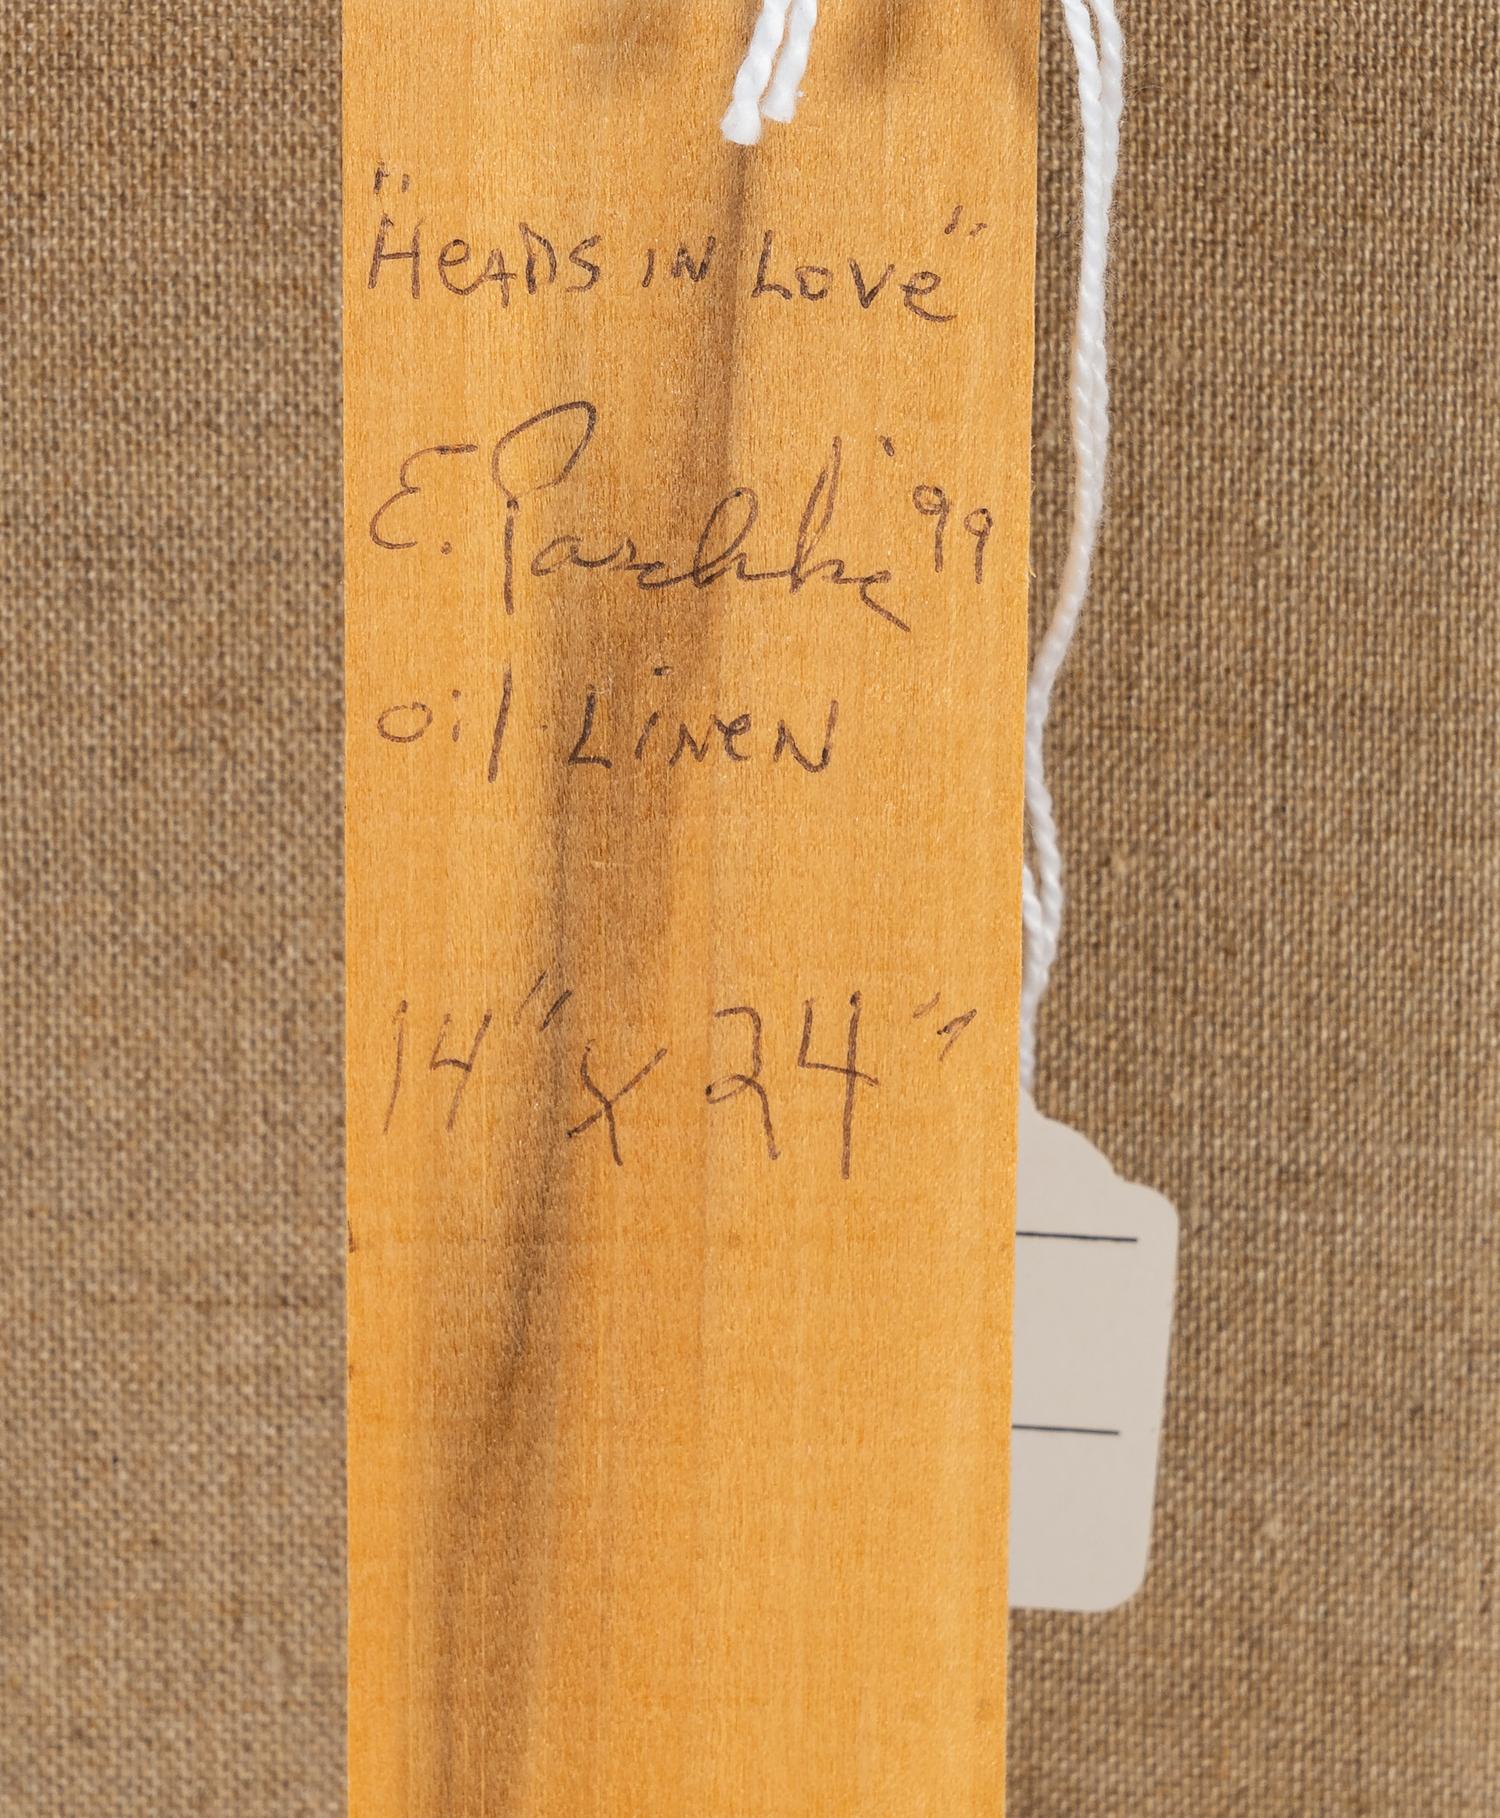 "HeADS IN Love"
E. Paschke '99
oil LiNeN
14" x 24"